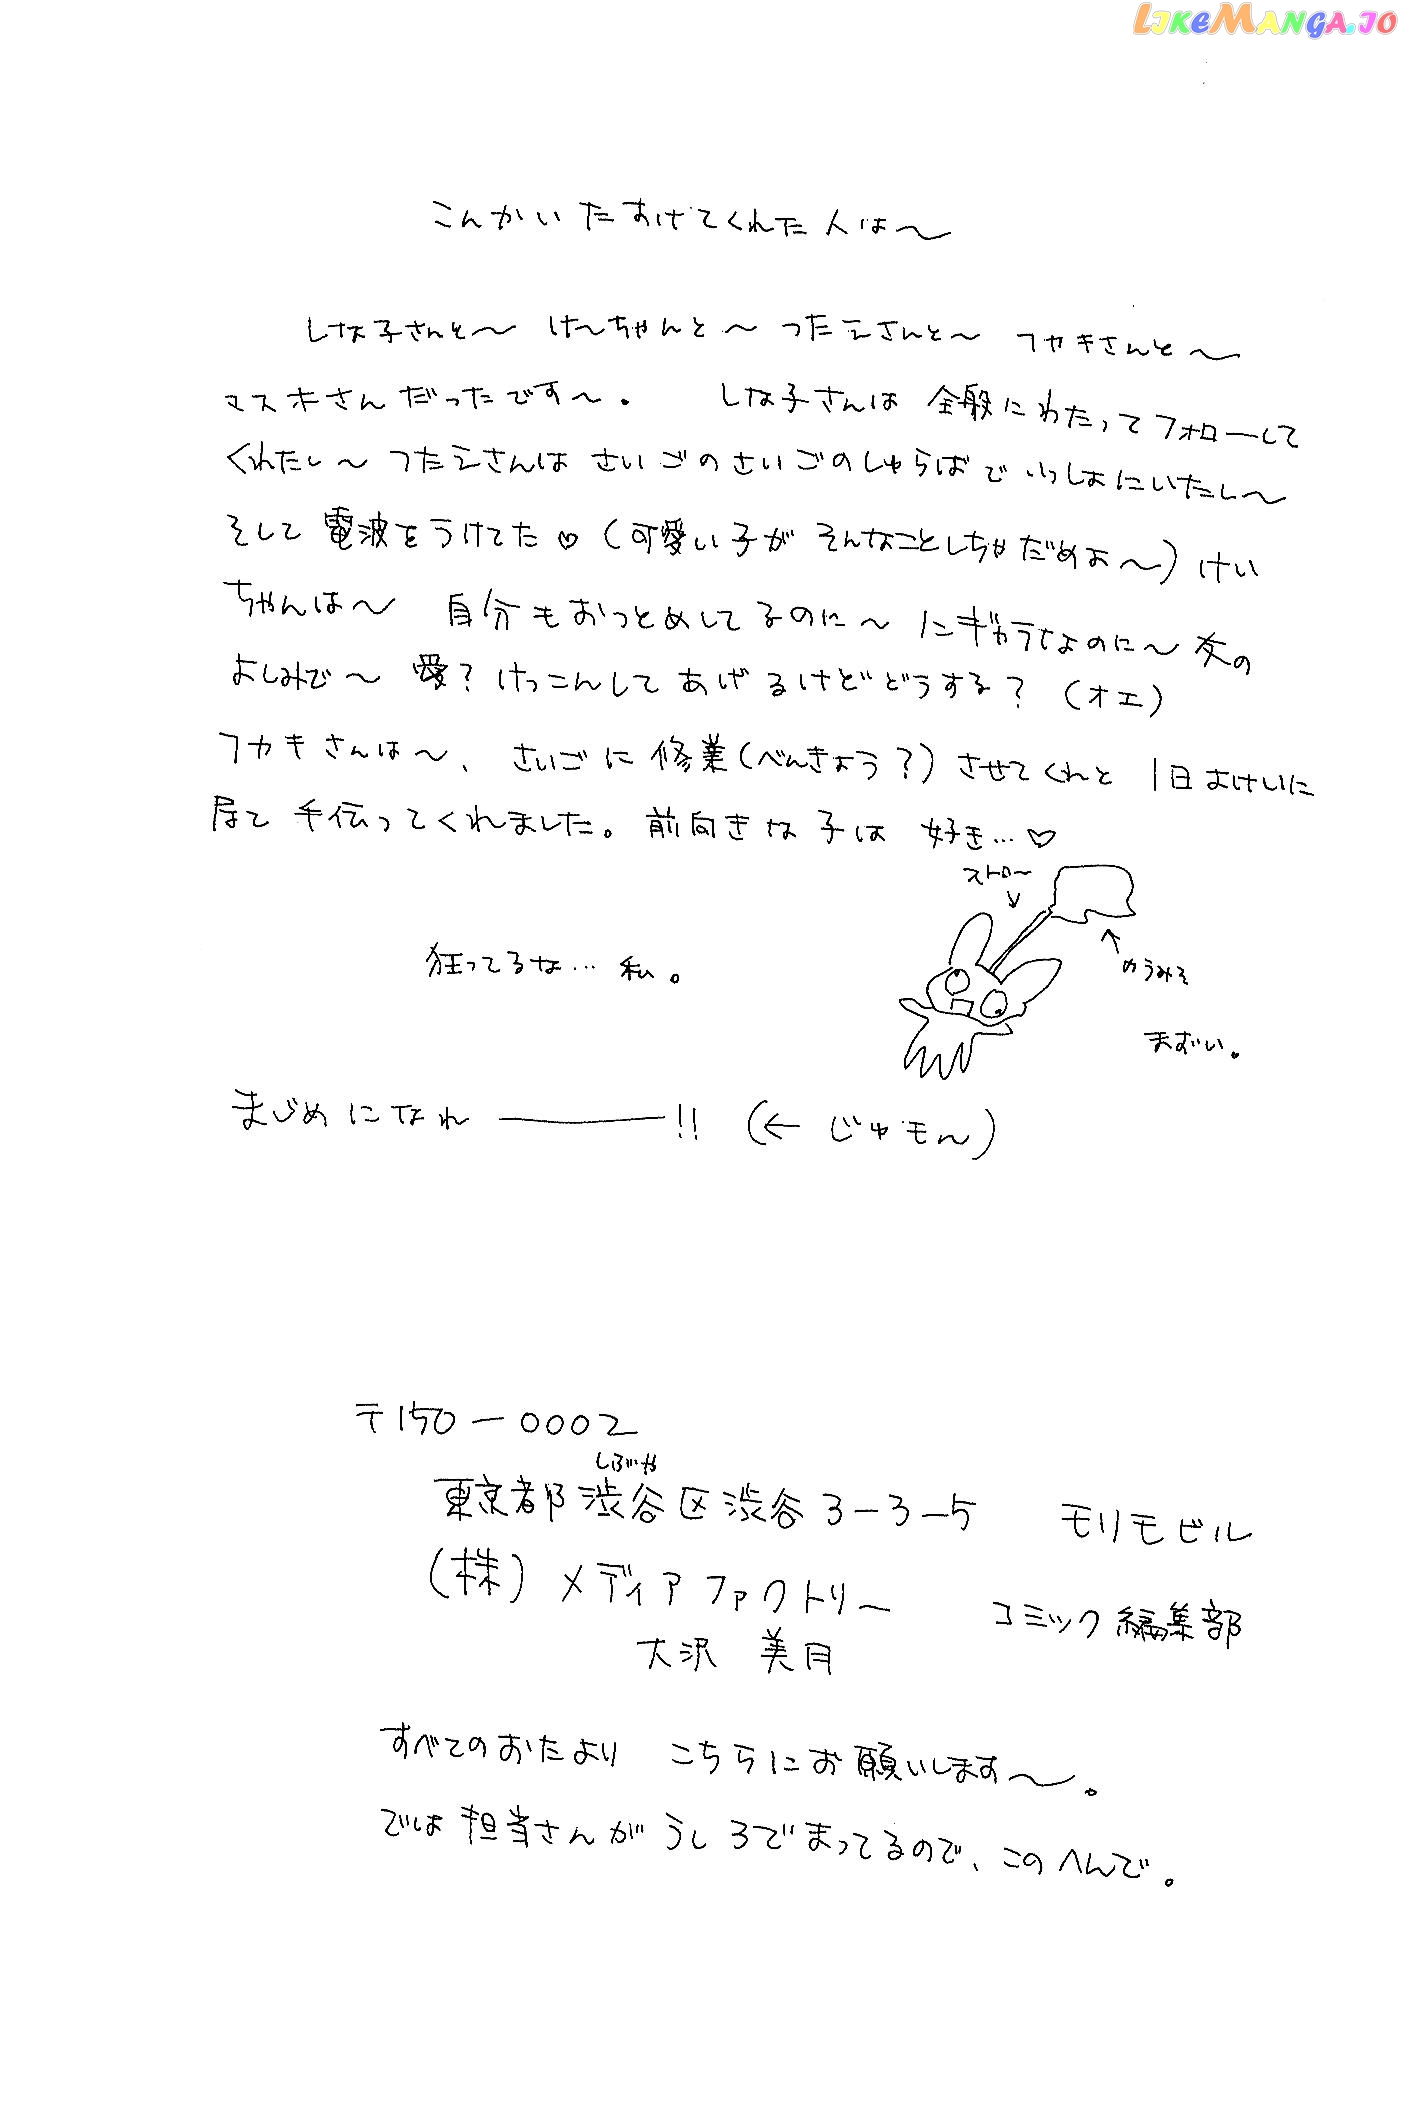 LIKEMANGA.IO
こんかいたすけてくれた人は〜
しな子さんと〜 けーちゃんと〜 つたえさんと〜 フカキさんと〜
マスホさんだったです〜。 しな子さんは 全般にわたってフォローして
くれたし〜 つたえさんは さいごのさいごのしゅらばで いっしょにいたし〜
そして 電波をうけてた♡ (可愛い子が そんなことしちゃだめよ〜) けい
ちゃんは〜 自分もおつとめしてるのに〜 ニギカラなのに〜 友の
よしみで〜 愛? けっこんして あげるけど どうする? (オエ)
フカキさんは〜、 さいごに 修業(べんきょう?) させてくれと 1日よけいに
居て 手伝ってくれました。前向きな子は 好き…♡
ストロー
↓
↑
のうみそ
狂ってるな… 私。
まずい。
まじめになれ ───!! (← じゅモん)
〒150-0002
しぶや
東京都渋谷区渋谷3-3-5 モリモビル
(株) メディアファクトリー コミック編集部
大沢 美月
すべてのおたより こちらにお願いします〜。
では担当さんがうしろでまってるので、このへんで。